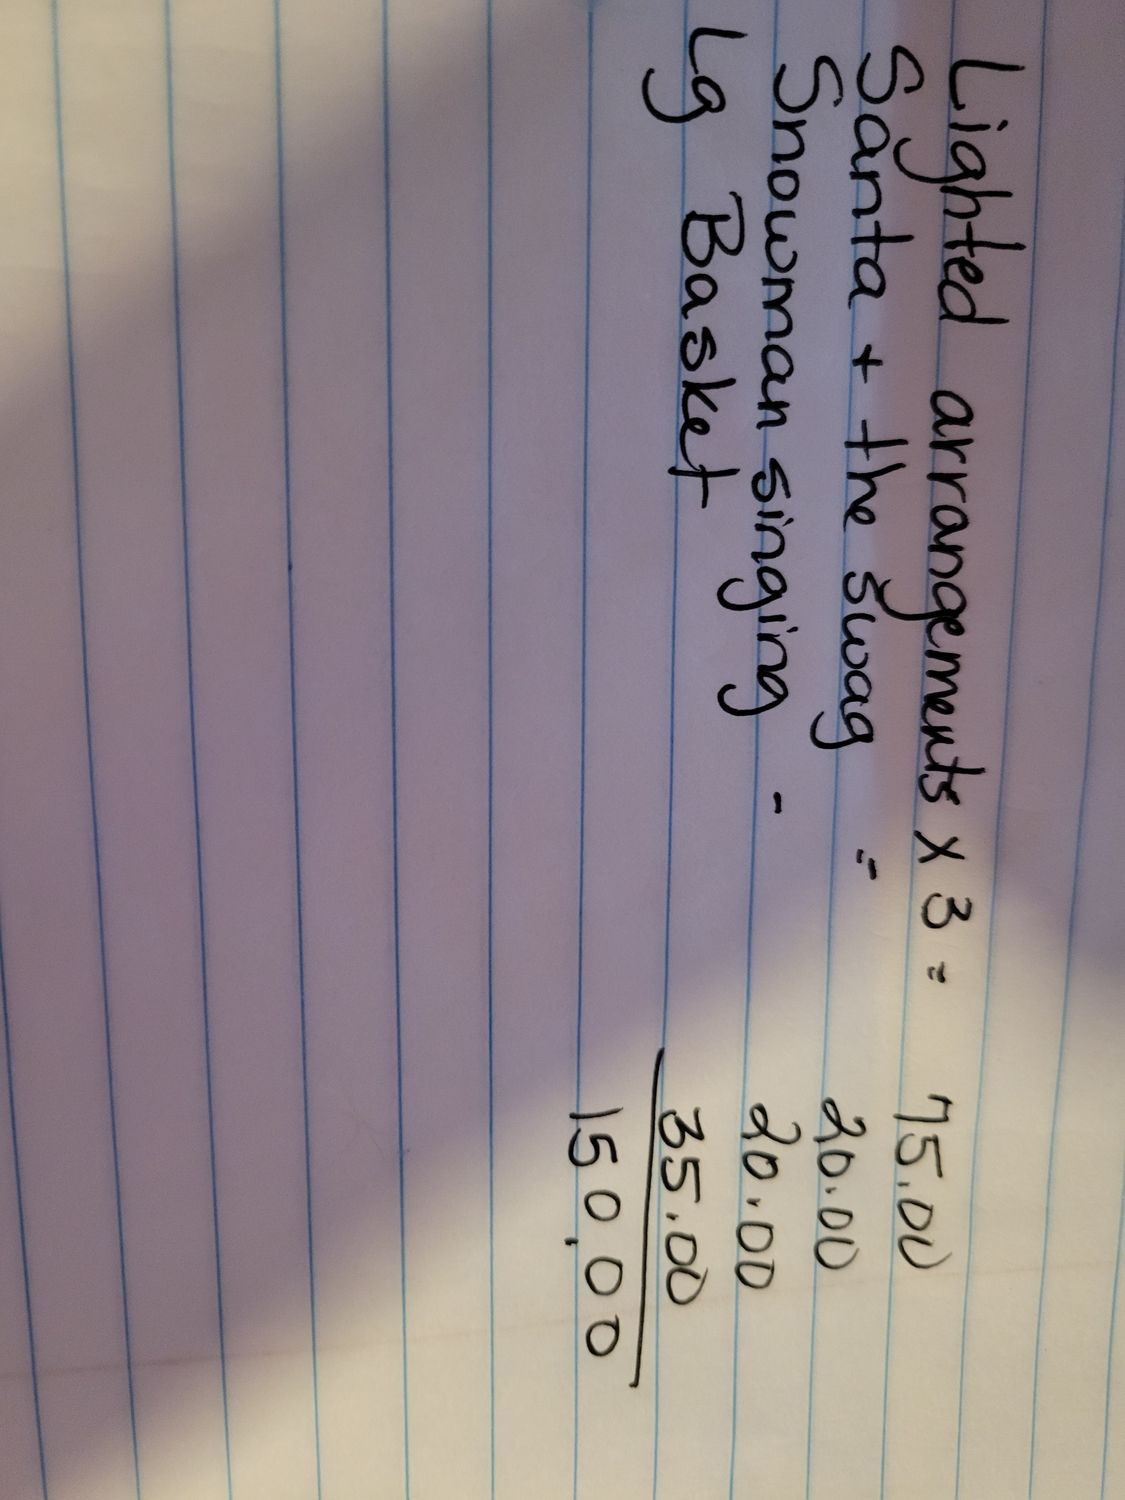 Lighted arrangements x 3 = 75.00
Santa + the swag = 20.00
Snowman singing - 20.00
Lg Basket 35.00
150.00